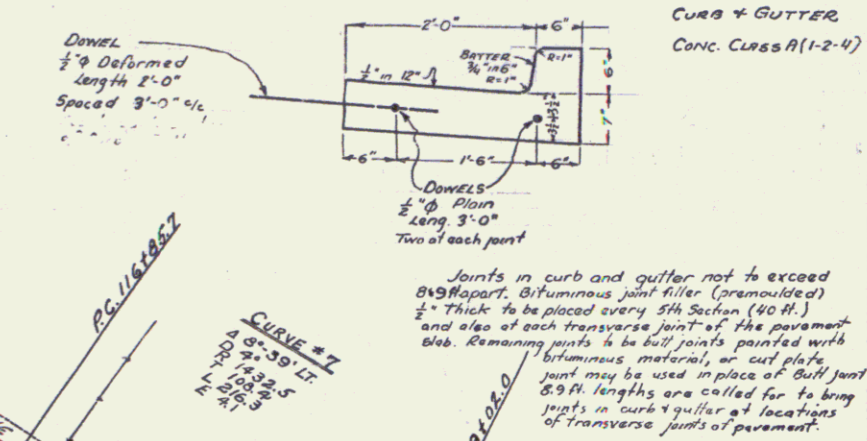 CURB & GUTTER
CONC. CLASS A (1-2-4)
2'-0"
6"
DOWEL
½"φ Deformed
Length 2'-0"
Spaced 3'-0" c/c
BATTER
¾" in 6"
R=1"
R=1"
½" in 12"
6"
7"
3½"
3½"
6"
1'-6"
6"
DOWELS
½"φ Plain
Leng. 3'-0"
Two at each joint
P.C. 116+85.7
CURVE #7
Δ 8°-39' LT.
D 4°
R 1432.5
T 108.4
L 216.3
E 4.1
Joints in curb and gutter not to exceed
8&9 ft apart. Bituminous joint filler (premoulded)
½" Thick to be placed every 5th Section (40 ft.)
and also at each transverse joint of the pavement
slab. Remaining joints to be butt joints painted with
bituminous material, or cut plate
joint may be used in place of Butt joint
8.9 ft. lengths are called for to bring
joints in curb & gutter at locations
of transverse joints of pavement.
+02.0